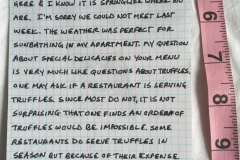 HERE & I KNOW IT IS SPRINGLIKE WHERE YOU
ARE. I'M SORRY WE COULD NOT MEET LAST
WEEK. THE WEATHER WAS PERFECT FOR
SUNBATHING IN MY APARTMENT. MY QUESTION
ABOUT SPECIAL DELICACIES ON YOUR MENU
IS VERY MUCH LIKE QUESTIONS ABOUT TRUFFLES.
ONE MAY ASK IF A RESTAURANT IS SERVING
TRUFFLES. SINCE MOST DO NOT, IT IS NOT
SURPRISING THAT ONE FINDS AN ORDER OF
TRUFFLES WOULD BE IMPOSSIBLE. SOME
RESTAURANTS DO SERVE TRUFFLES IN
SEASON BUT BECAUSE OF THEIR EXPENSE
6
7
8
9